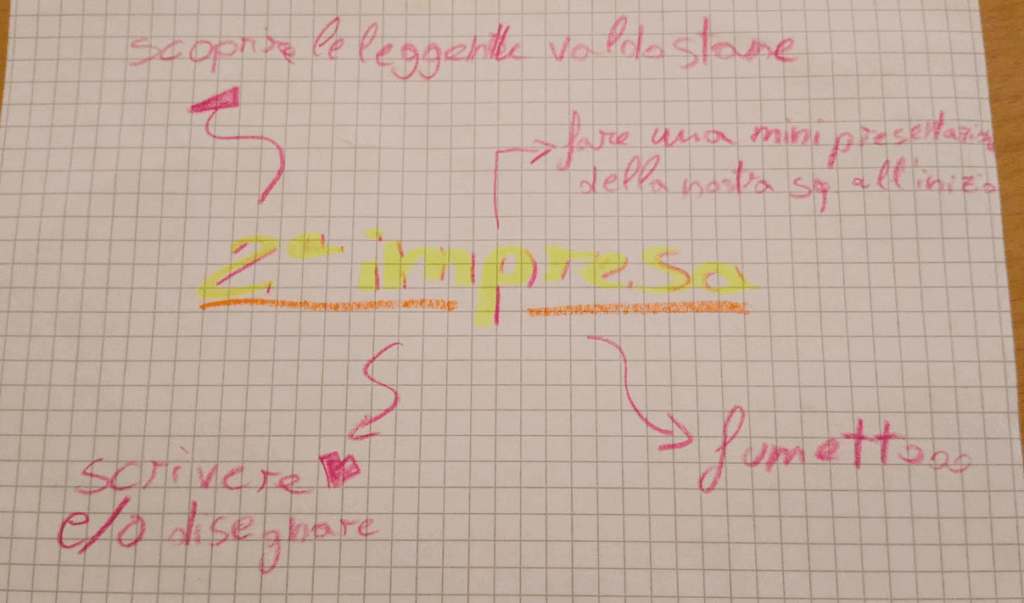 scoprire le leggende valdostane
fare una mini presentazio
della nostra sq all'inizio
2ª impresa
scrivere
e/o disegnare
fumettooo